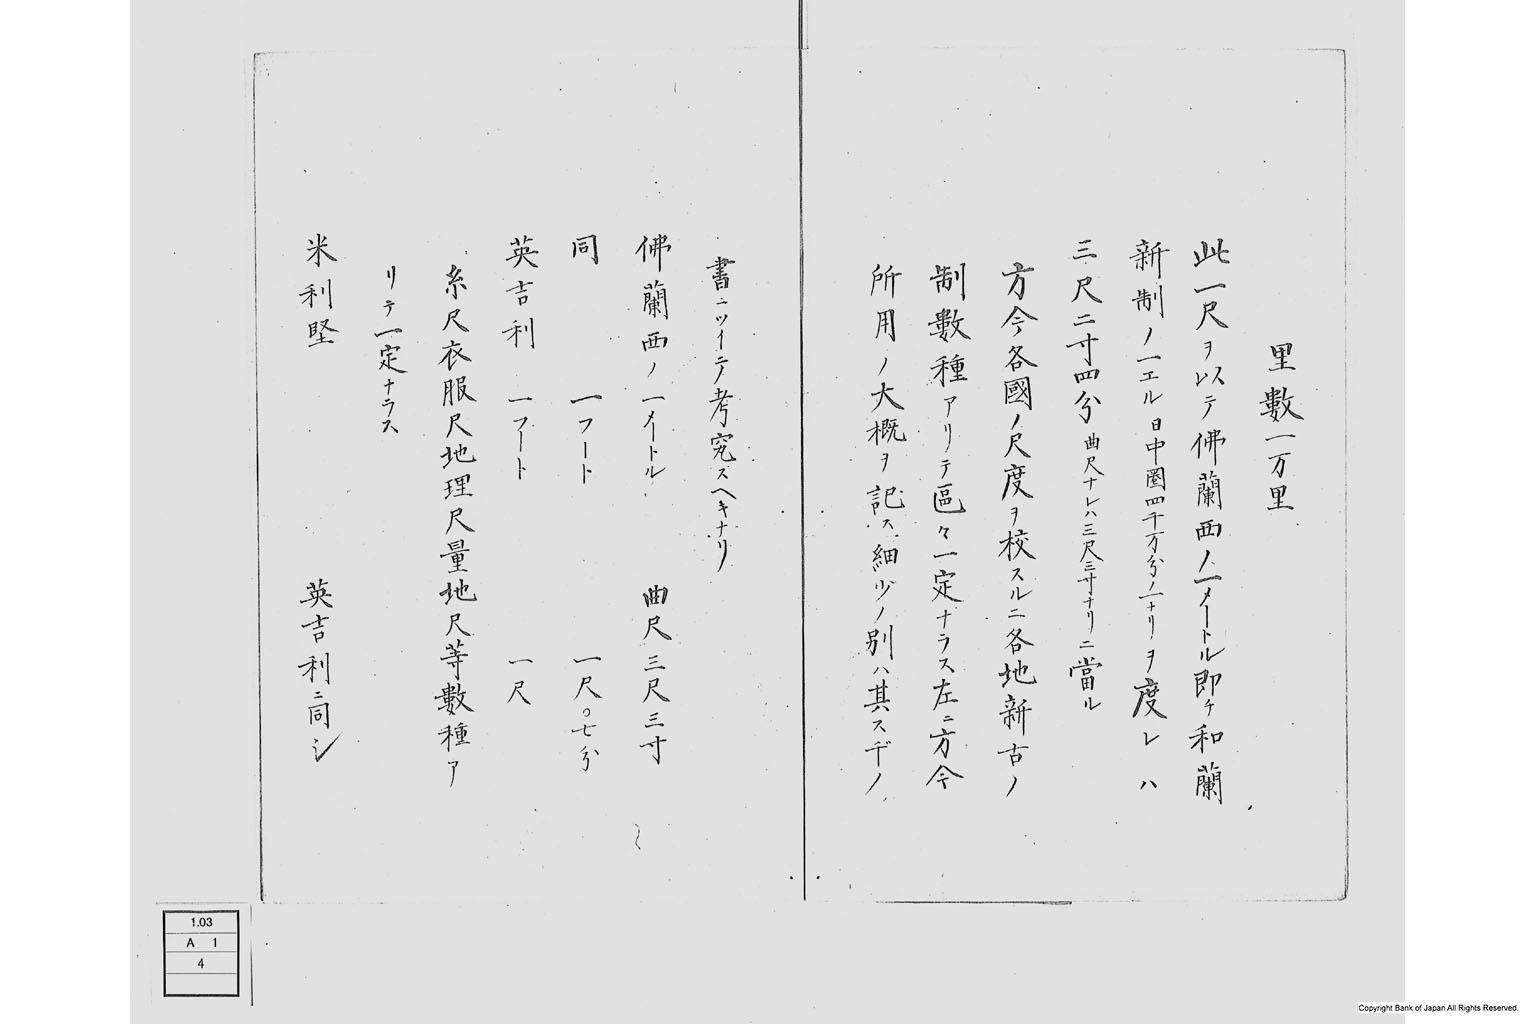 里數一万里
此一尺ヲ以テ佛蘭西ノ一メートル即チ和蘭
新制ノ一エル日中圏四千万分ノ一ナリヲ度レハ
三尺二寸四分曲尺ナレハ三尺三寸ナリニ當ル
方今各國ノ尺度ヲ校スルニ各地新古ノ
制數種アリテ區々一定ナラス左ニ方今
所用ノ大概ヲ記ス細少ノ別ハ其スヂノ
書ニツイテ考究スヘキナリ
佛蘭西ノ一メートル 曲尺三尺三寸
同 一フート 一尺〇七分
英吉利 一フート 一尺
糸尺衣服尺地理尺量地尺等數種ア
リテ一定ナラス
米利堅 英吉利ニ同シ
1.03
A 1
4
Copyright Bank of Japan All Rights Reserved.